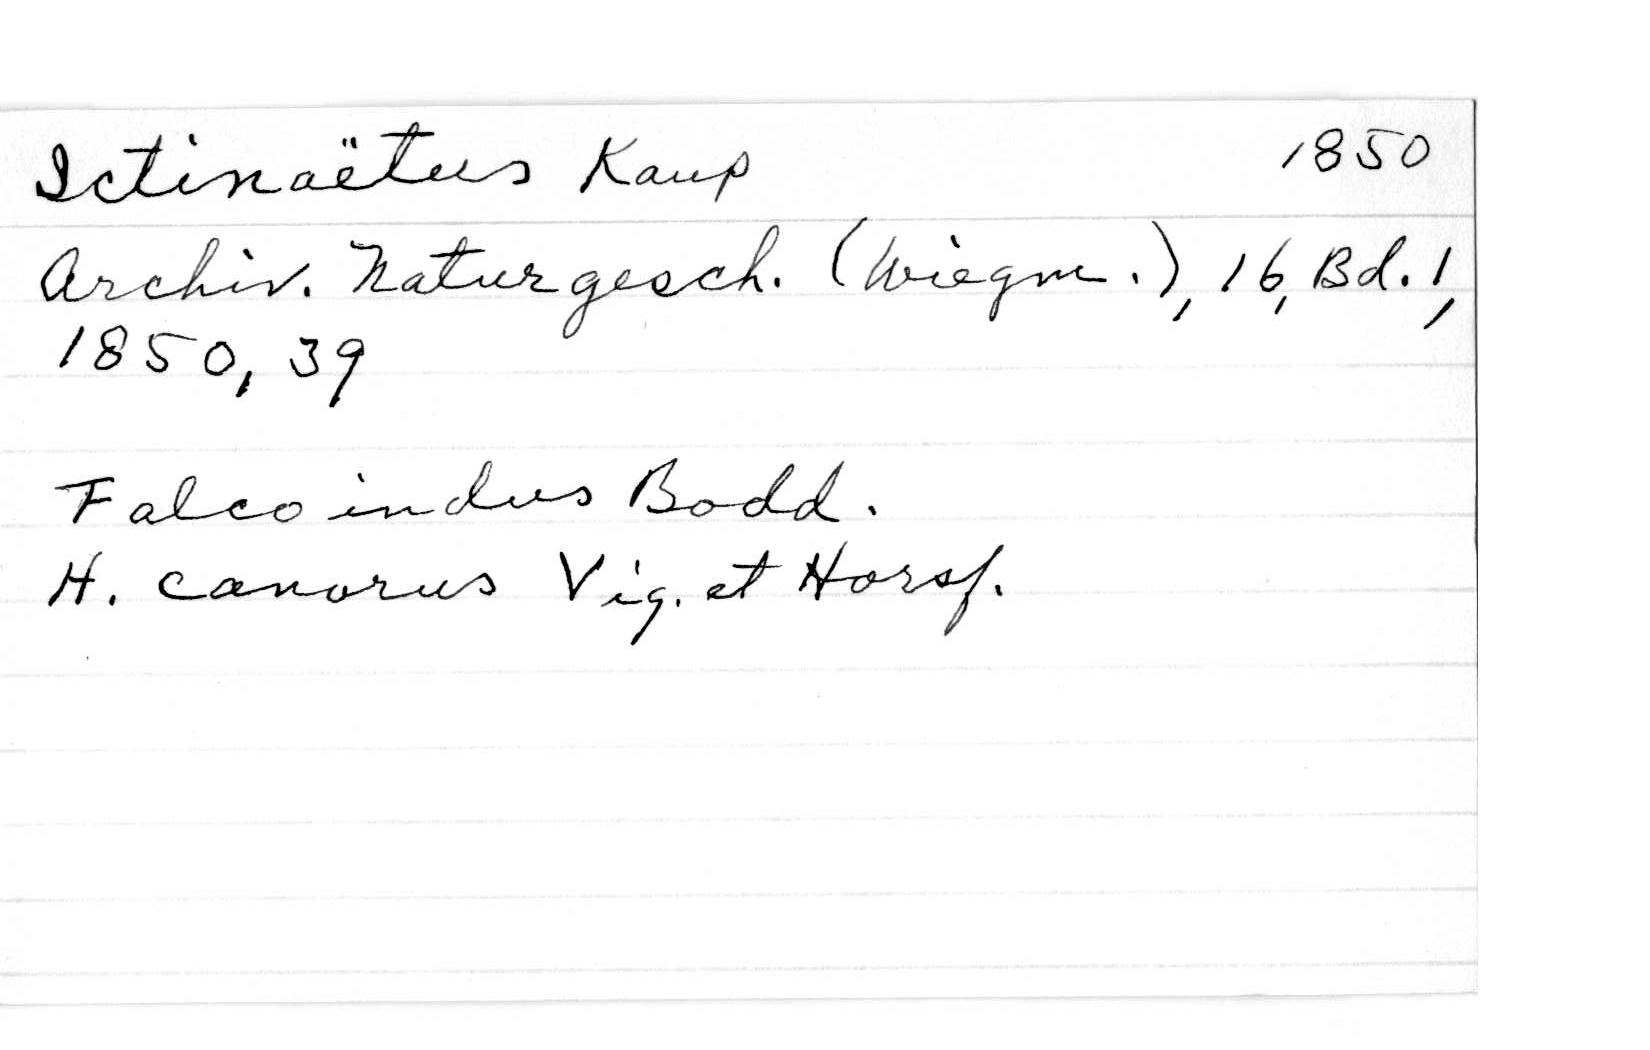 Ictinaëtus Kaup 1850
Archiv. Naturgesch. (Wiegm.), 16, Bd. 1,
1850, 39
Falco indus Bodd.
H. canorus Vig. et Horsf.